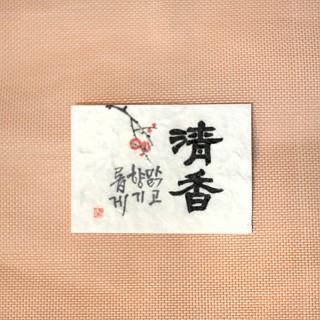 清香
맑고
향기
롭게